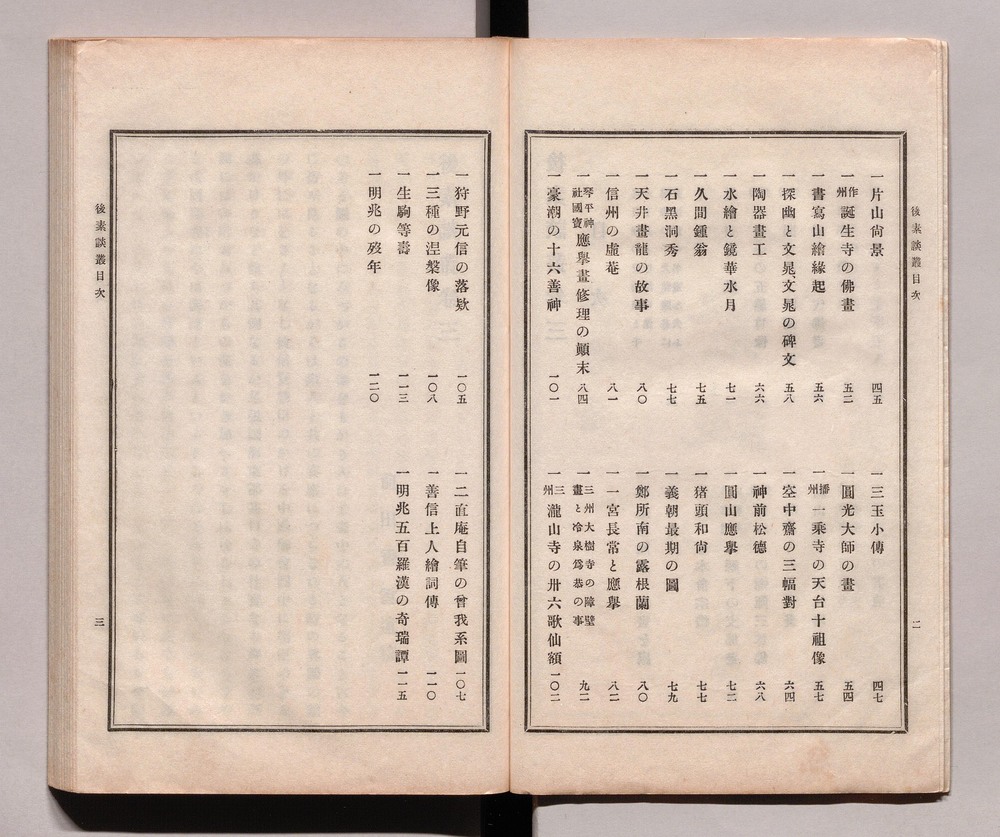 後素談叢目次
二
一片山尙景 四五
一三玉小傳 四七
一作州誕生寺の佛畫 五二
一圓光大師の畫 五四
一書寫山繪緣起 五六
一播州一乘寺の天台十祖像 五七
一探幽と文晁、文晁の碑文 五八
一空中齋の三幅對 六四
一陶器畫工 六六
一神前松德 六八
一水繪と鏡華水月 七一
一圓山應擧 七二
一久間鍾翁 七五
一猪頭和尙 七七
一石黑洞秀 七七
一義朝最期の圖 七九
一天井畫龍の故事 八〇
一鄭所南の露根蘭 八〇
一信州の虛菴 八一
一一宮長常と應擧 八二
一琴平神社國寶應擧畫修理の顚末 八四
一三州大樹寺の障壁畫と冷泉爲恭の事 九二
一豪潮の十六善神 一〇一
一三州瀧山寺の卅六歌仙額 一〇二
一狩野元信の落欵 一〇五
一二直庵自筆の曾我系圖 一〇七
一三種の湼槃像 一〇八
一善信上人繪詞傳 一一〇
一生駒等壽 一一三
一明兆五百羅漢の奇瑞譚 一一五
一明兆の歿年 一二〇
後素談叢目次
三